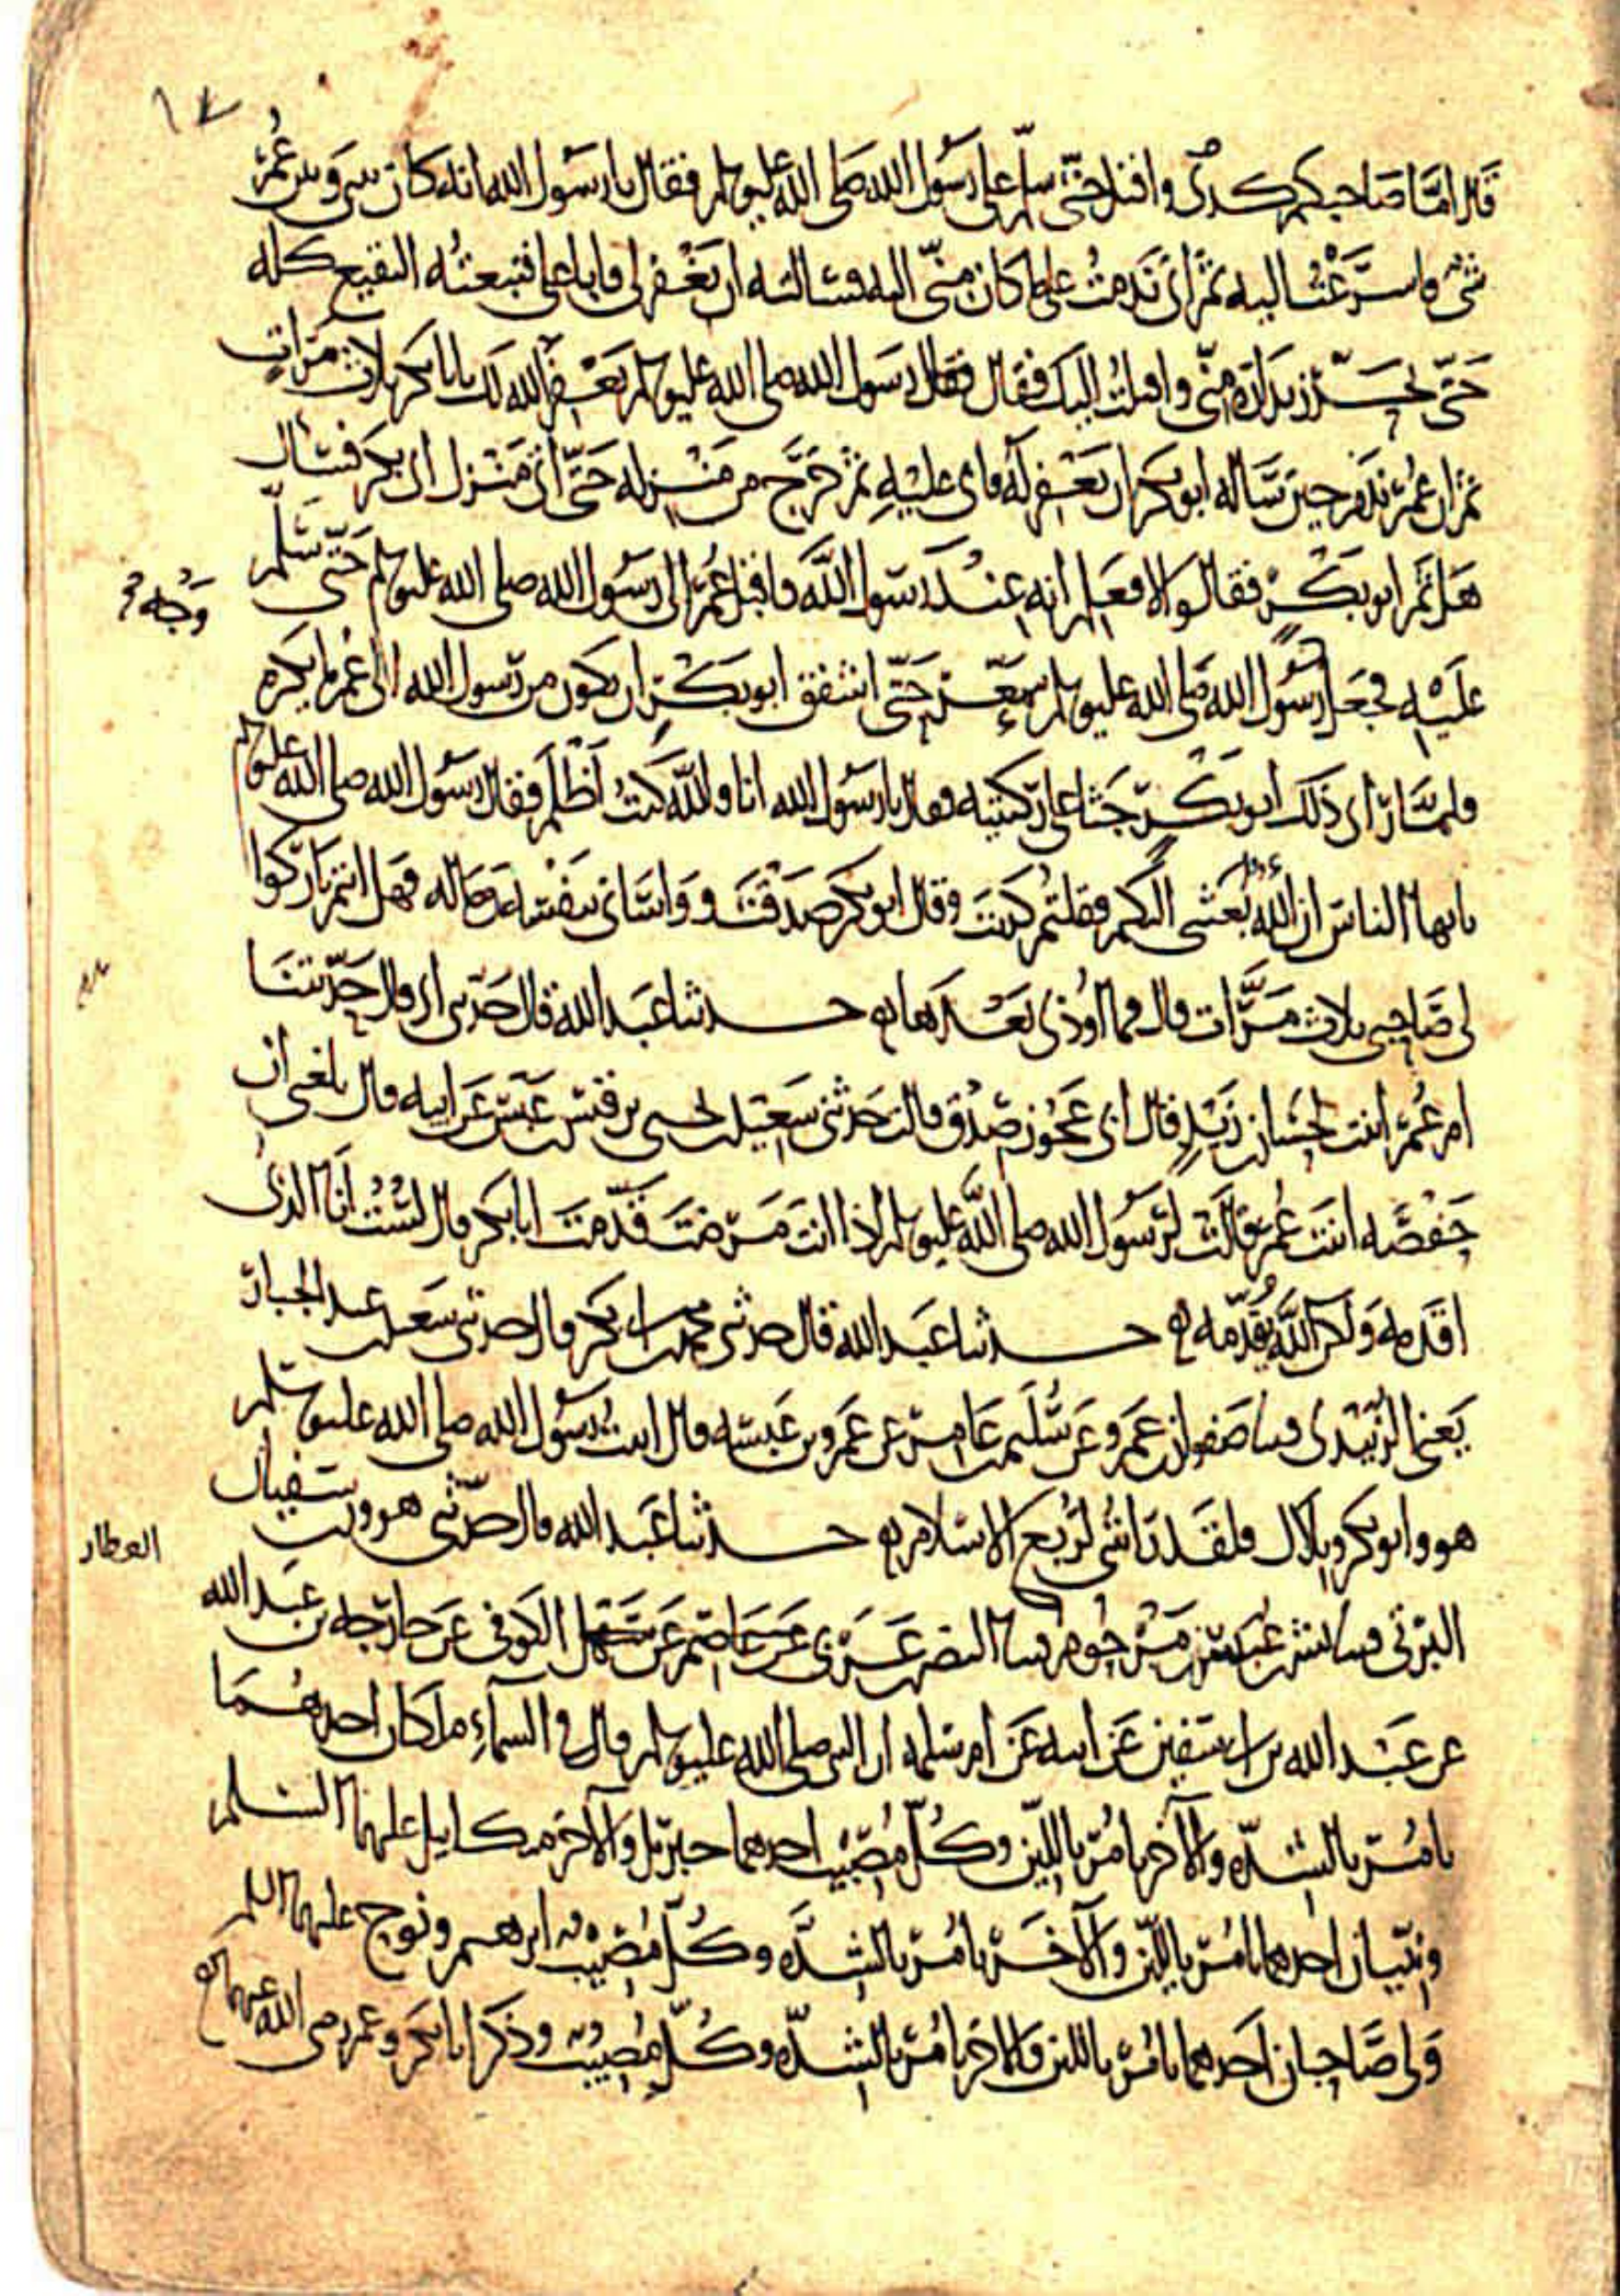 ١٧
قال اما صاحبكم كدى واقبل حتى سلم على رسول الله صلى الله عليه وسلم فقال يا رسول الله انه كان بيني وبين عمر
شيء فاسرعت اليه ثم اني ندمت على ما كان مني اليه فسالته ان يغفر لي فابا علي فتبعته البقيع كله
حتى تحرز بداره مني واقبلت اليك فقال فقال رسول الله صلى الله عليه وسلم يغفر الله لك يا ابا بكر ثلاث مرات
ثم ان عمر ندم حين ساله ابو بكر ان يغفر له فابى عليه ثم خرج من منزله حتى اتى منزل ابي بكر فسال
هل ثم ابو بكر فقالوا لا فعلم انه عند رسول الله فاقبل عمر الى رسول الله صلى الله عليه وسلم حتى سلم
عليه فجعل رسول الله صلى الله عليه وسلم يتمعر حتى اشفق ابو بكر ان يكون من رسول الله الى عمر ما يكره
وجه
فلما راى ذلك ابو بكر جثا على ركبتيه فقال يا رسول الله انا والله كنت اظلم فقال رسول الله صلى الله عليه وسلم
يا ايها الناس ان الله بعثني اليكم فقلتم كذبت وقال ابو بكر صدقت وواساني بنفسه وماله فهل انتم تاركوا
لي صاحبي ثلاث مرات قال فما اوذي بعدها حدثنا عبد الله قال حدثني ابي قال حدثتنا
ام عمر ابنت حسان بن زيد قال ابي عجوز صدق قالت حدثني سعيد بن يحيى بن قيس بن عبس عن ابيه قال بلغني ان
حفصة ابنت عمر قالت لرسول الله صلى الله عليه وسلم اذا انت مرضت قدمت ابا بكر قال لست انا الذي
اقدمه ولكن الله يقدمه حدثنا عبد الله قال حدثني محمد بن ابي بكر قال حدثني سعيد بن عبد الجبار
يعني الزبيدي قثنا صفوان بن عمرو عن سليم بن عامر عن عمرو بن عبسه قال اتيت رسول الله صلى الله عليه وسلم
هو وابو بكر وبلال فلقد رايتني لربع الاسلام حدثنا عبد الله قال حدثني هرون بن سفيان
العطار
البزني قثنا بشر بن عبيس بن مرحوم قثنا النضر بن عربي عن عاصم عن سهل الكوفي عن خارجه بن عبد الله
عن عبد الله بن ابي سفين عن ابيه عن ام سلمه ان النبي صلى الله عليه وسلم قال في السماء ملكان احدهما
يامر بالشده والاخر يامر باللين وكل مصيب احدهما جبريل والاخر ميكايل عليهما السلم
ونبيان احدهما يامر باللين والاخر يامر بالشده وكل مصيب ابرهيم ونوح عليهما السلم
ولي صاحبان احدهما يامر باللين والاخر يامر بالشده وكل مصيب وذكر ابا بكر وعمر رضي الله عنهما